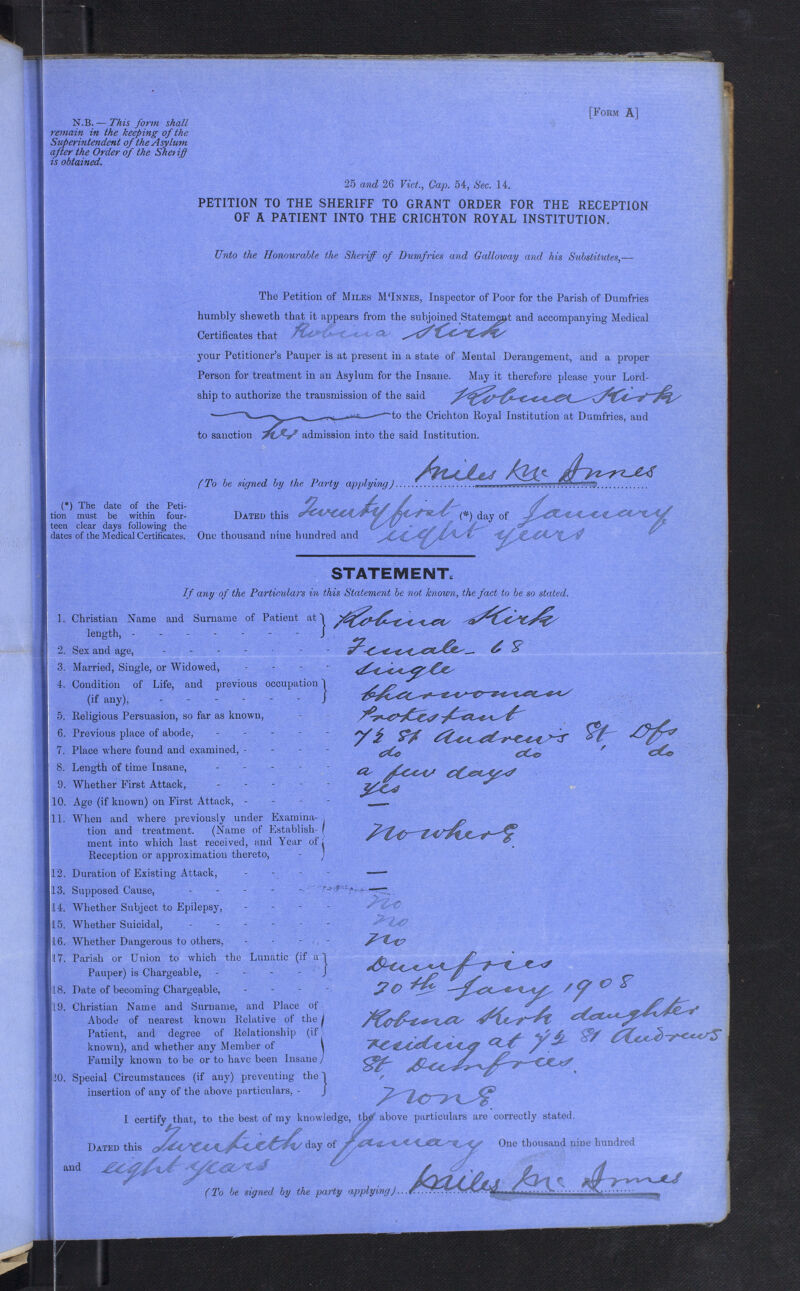 [FORM A]
N.B. — This form shall
remain in the keeping of the
Superintendent of the Asylum
after the Order of the Sheriff
is obtained.
25 and 26 Vict., Cap. 54, Sec. 14.
PETITION TO THE SHERIFF TO GRANT ORDER FOR THE RECEPTION
OF A PATIENT INTO THE CRICHTON ROYAL INSTITUTION.
Unto the Honourable the Sheriff of Dumfries and Galloway and his Substitutes,—
The Petition of MILES M'INNES, Inspector of Poor for the Parish of Dumfries
humbly sheweth that it appears from the subjoined Statement and accompanying Medical
Certificates that Robina Kirk
your Petitioner's Pauper is at present in a state of Mental Derangement, and a proper
Person for treatment in an Asylum for the Insane. May it therefore please your Lord-
ship to authorize the transmission of the said Robina Kirk
to the Crichton Royal Institution at Dumfries, and
to sanction her admission into the said Institution.
(To be signed by the Party applying) Miles McInnes
(*) The date of the Peti-
tion must be within four-
teen clear days following the
dates of the Medical Certificates.
DATED this Twenty first (*) day of January
One thousand nine hundred and eight years
STATEMENT.
If any of the Particulars in this Statement be not known, the fact to be so stated.
1. Christian Name and Surname of Patient at
length, - Robina Kirk
2. Sex and age, - Female - 68
3. Married, Single, or Widowed, - Single
4. Condition of Life, and previous occupation
(if any), - Charwoman
5. Religious Persuasion, so far as known, Protestant
6. Previous place of abode, - 72 St Andrew's St, Dfs
7. Place where found and examined, - do do do
8. Length of time Insane, - a few days
9. Whether First Attack, - yes
10. Age (if known) on First Attack, - —
11. When and where previously under Examina-
tion and treatment. (Name of Establish-
ment into which last received, and Year of
Reception or approximation thereto, - Nowhere
12. Duration of Existing Attack, - —
13. Supposed Cause, - —
14. Whether Subject to Epilepsy, - No
15. Whether Suicidal, - No
16. Whether Dangerous to others, - No
17. Parish or Union to which the Lunatic (if a
Pauper) is Chargeable, - Dumfries
18. Date of becoming Chargeable, - 20th Jany 1908
19. Christian Name and Surname, and Place of
Abode of nearest known Relative of the
Patient, and degree of Relationship (if
known), and whether any Member of
Family known to be or to have been Insane
Robina Kirk daughter
residing at 72 St Andrews
St Dumfries
20. Special Circumstances (if any) preventing the
insertion of any of the above particulars, - None
I certify that, to the best of my knowledge, the above particulars are correctly stated.
DATED this Twentieth day of January One thousand nine hundred
and eight years
(To be signed by the party applying) Miles McInnes